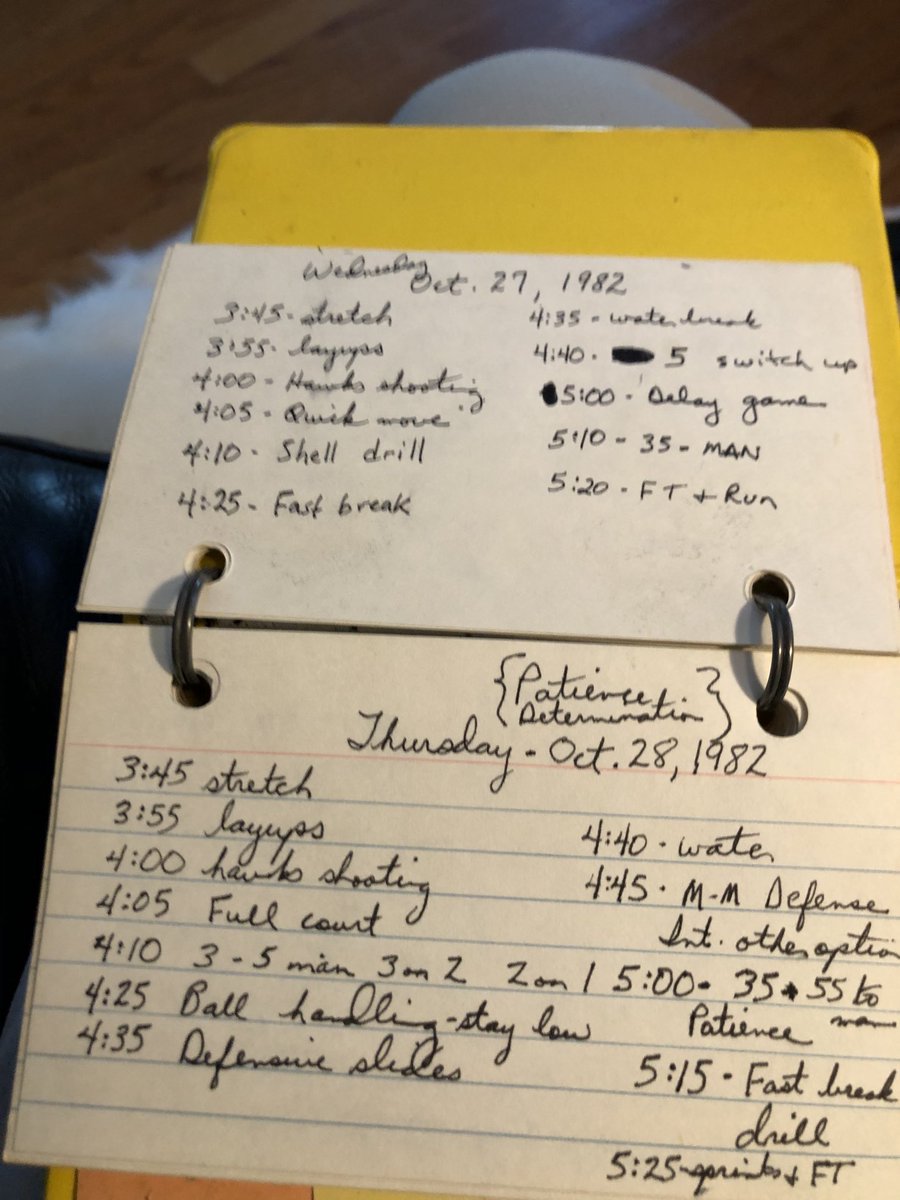 Wednesday Oct. 27, 1982
3:45 - stretch
3:55 - layups
4:00 - Hawks shooting
4:05 - Quick move
4:10 - Shell drill
4:25 - Fast break
4:35 - water break
4:40 - 5 switch up
5:00 - Delay game
5:10 - 35 - MAN
5:20 - FT + Run
{Patience
Determination}
Thursday - Oct. 28, 1982
3:45 stretch
3:55 layups
4:00 hawks shooting
4:05 Full court
4:10 3 - 5 man 3 on 2 2 on 1
4:25 Ball handling - stay low
4:35 Defensive slides
4:40 - water
4:45 - M-M Defense
Int. other option
5:00 - 35 55 to
man
Patience
5:15 - Fast break
drill
5:25 - sprints + FT